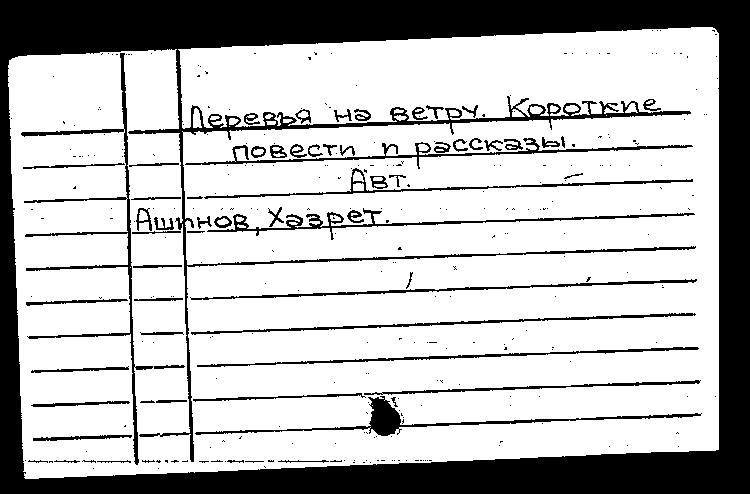 Деревья на ветру. Короткие
повести и рассказы.
Авт.
Ашинов, Хазрет.